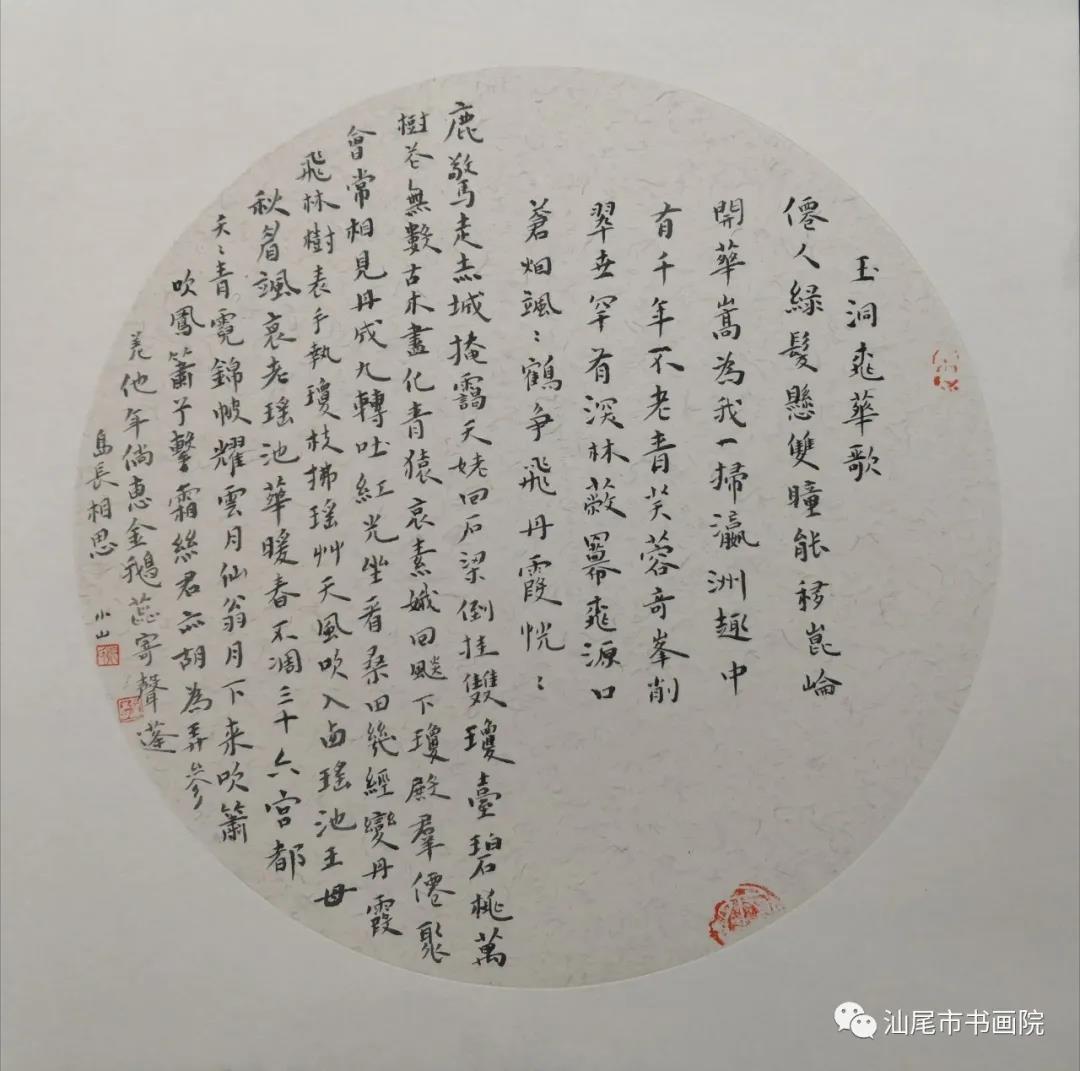 玉洞桃華歌
僊人綠髮懸雙瞳能移崑崙
開華嵩為我一掃瀛洲趣中
有千年不老青芙蓉奇峯削
翠世罕有深林蔽羃桃源口
蒼烟颯〻鶴争飛丹霞恍〻
鹿驚走赤城掩靄天姥回石梁倒挂雙瓊臺碧桃萬
樹花無數古木盡化青猿哀素娥回飈下瓊殿羣僊聚
會常相見丹成九轉吐紅光坐看桑田幾經變丹霞
飛林樹表手執瓊枝拂瑤艸天風吹入西瑤池王母
秋眉颯衰老瑤池華暖春不凋三十六宮都
夭〻青霓錦帔耀雲月仙翁月下来吹簫
吹鳳簫予擊霜絲君亦胡為弄參
差他年倘惠金鵝蕊寄聲蓬
島長相思 小山
汕尾市书画院